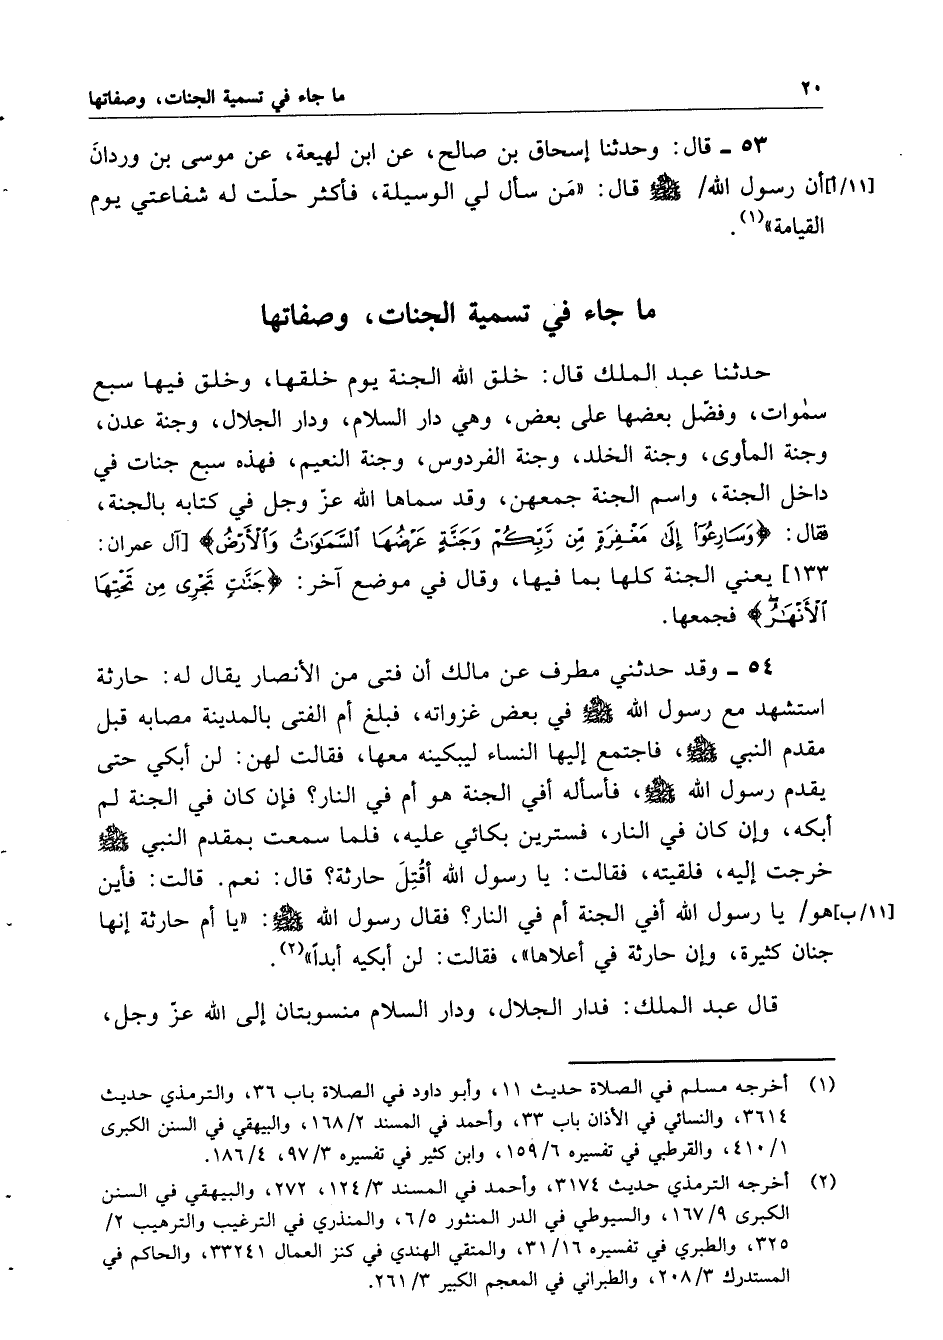 ٢٠ ما جاء في تسمية الجنات، وصفاتها
٥٣ ـ قال: وحدثنا إسحاق بن صالح، عن ابن لهيعة، عن موسى بن وردانَ
[١١/أ] أن رسول الله/ ﷺ قال: «مَن سأل لي الوسيلة، فأكثر حلّت له شفاعتي يوم
القيامة»(١).
ما جاء في تسمية الجنات، وصفاتها
حدثنا عبد الملك قال: خلق الله الجنة يوم خلقها، وخلق فيها سبع
سمٰوات، وفضّل بعضها على بعض، وهي دار السلام، ودار الجلال، وجنة عدن،
وجنة المأوى، وجنة الخلد، وجنة الفردوس، وجنة النعيم، فهذه سبع جنات في
داخل الجنة، واسم الجنة جمعهن، وقد سماها الله عزّ وجل في كتابه بالجنة،
فقال: ﴿وَسَارِعُوٓا إِلَى مَغْفِرَةٍ مِّن رَّبِّكُمْ وَجَنَّةٍ عَرْضُهَا ٱلسَّمَٰوَٰتُ وَٱلْأَرْضُ﴾ [آل عمران:
١٣٣] يعني الجنة كلها بما فيها، وقال في موضع آخر: ﴿جَنَّٰتٍ تَجْرِى مِن تَحْتِهَا
ٱلْأَنْهَٰرُ﴾ فجمعها.
٥٤ ـ وقد حدثني مطرف عن مالك أن فتى من الأنصار يقال له: حارثة
استشهد مع رسول الله ﷺ في بعض غزواته، فبلغ أم الفتى بالمدينة مصابه قبل
مقدم النبي ﷺ، فاجتمع إليها النساء ليبكينه معها، فقالت لهن: لن أبكي حتى
يقدم رسول الله ﷺ، فأسأله أفي الجنة هو أم في النار؟ فإن كان في الجنة لم
أبكه، وإن كان في النار، فسترين بكائي عليه، فلما سمعت بمقدم النبي ﷺ
خرجت إليه، فلقيته، فقالت: يا رسول الله أقُتِلَ حارثة؟ قال: نعم. قالت: فأين
[١١/ب] هو/ يا رسول الله أفي الجنة أم في النار؟ فقال رسول الله ﷺ: «يا أم حارثة إنها
جنان كثيرة، وإن حارثة في أعلاها»، فقالت: لن أبكيه أبداً»(٢).
قال عبد الملك: فدار الجلال، ودار السلام منسوبتان إلى الله عزّ وجل،
(١) أخرجه مسلم في الصلاة حديث ١١، وأبو داود في الصلاة باب ٣٦، والترمذي حديث
٣٦١٤، والنسائي في الأذان باب ٣٣، وأحمد في المسند ١٦٨/٢، والبيهقي في السنن الكبرى
٤١٠/١، والقرطبي في تفسيره ١٥٩/٦، وابن كثير في تفسيره ٩٧/٣، ١٨٦/٤.
(٢) أخرجه الترمذي حديث ٣١٧٤، وأحمد في المسند ١٢٤/٣، ٢٧٢، والبيهقي في السنن
الكبرى ١٦٧/٩، والسيوطي في الدر المنثور ٦/٥، والمنذري في الترغيب والترهيب ٢/
٣٢٥، والطبري في تفسيره ٣١/١٦، والمتقي الهندي في كنز العمال ٣٣٢٤١، والحاكم في
المستدرك ٢٠٨/٣، والطبراني في المعجم الكبير ٢٦١/٣.